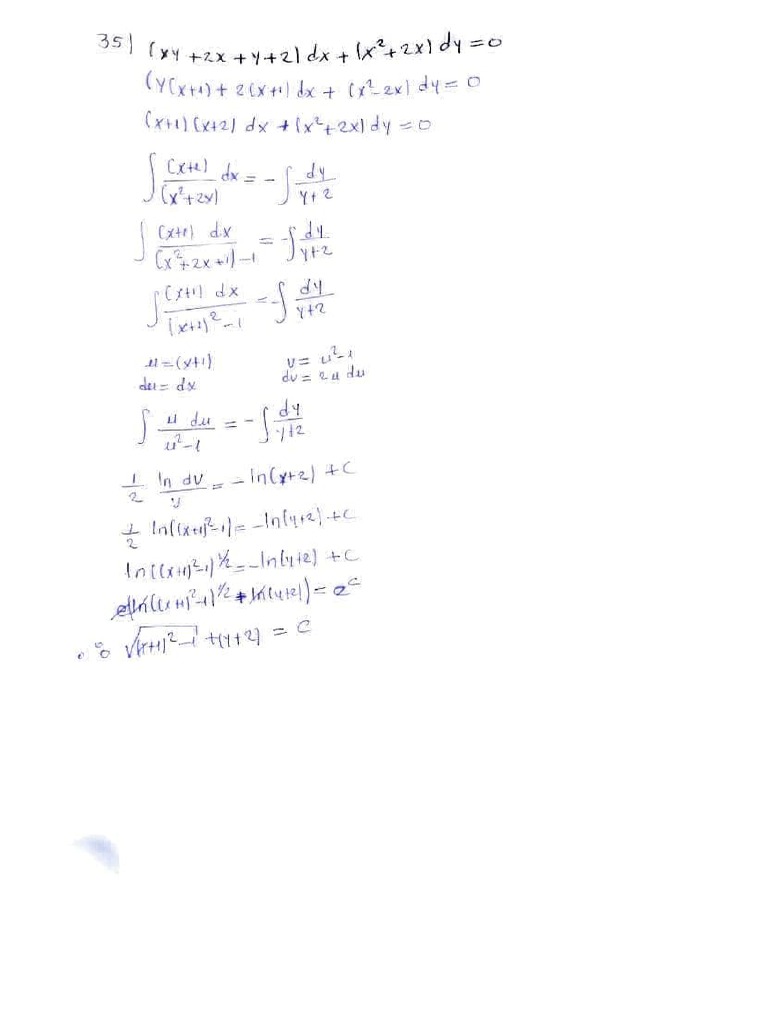 35) (xy + 2x + y + 2) dx + (x² + 2x) dy = 0
(y(x+1) + 2(x+1) dx + (x² - 2x) dy = 0
(x+1)(x+2) dx + (x² + 2x) dy = 0
∫ (x+2)/(x²+2x) dx = - ∫ dy/(y+2)
∫ (x+1) dx/((x²+2x+1)-1) = -∫ dy/(y+2)
∫ (x+1) dx/((x+1)²-1) = -∫ dy/(y+2)
u = (x+1) v = u²-1
du = dx dv = 2u du
∫ u du/(u²-1) = -∫ dy/(y+2)
1/2 ln dv/v = - ln(y+2) + C
1/2 ln((x+1)²-1) = -ln(y+2) + C
ln((x+1)²-1)^½ = -ln(y+2) + C
((x+1)²-1)^1/2 + (y+2)) = e^c
√((x+1)²-1) + (y+2) = C